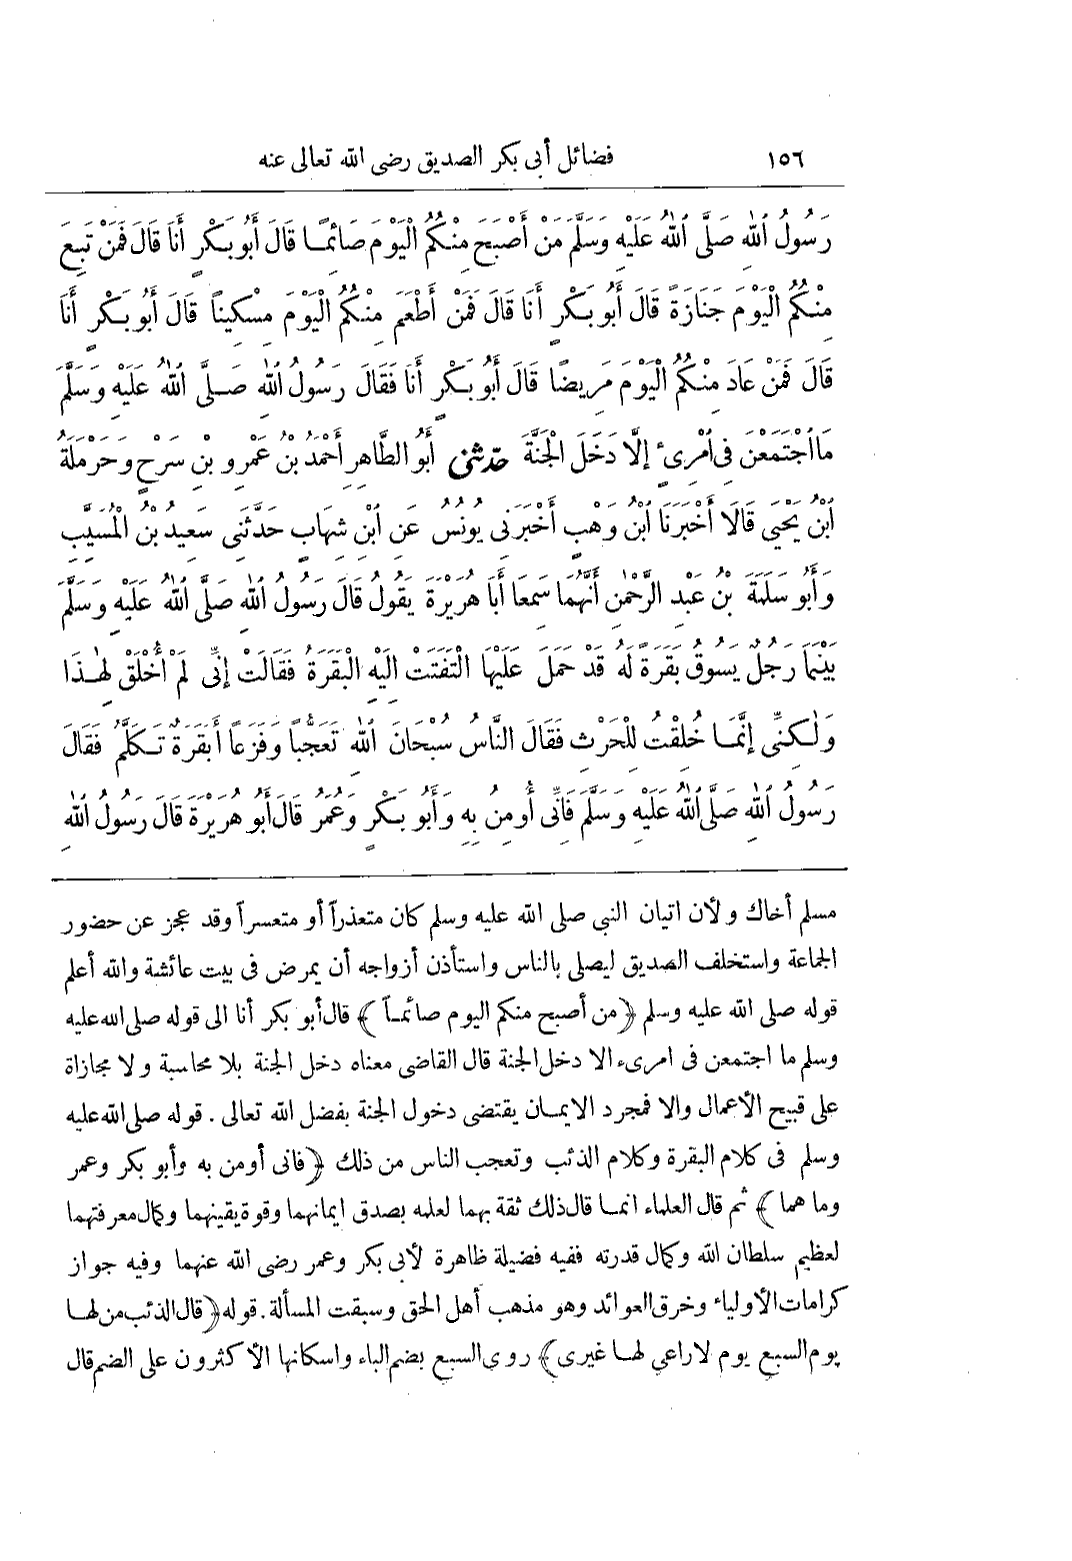 ١٥٦
فضائل أبى بكر الصديق رضى الله تعالى عنه
رَسُولُ ٱللهِ صَلَّى ٱللهُ عَلَيْهِ وَسَلَّمَ مَنْ أَصْبَحَ مِنْكُمُ الْيَوْمَ صَائِمًا قَالَ أَبُو بَكْرٍ أَنَا قَالَ فَمَنْ تَبِعَ
مِنْكُمُ الْيَوْمَ جَنَازَةً قَالَ أَبُو بَكْرٍ أَنَا قَالَ فَمَنْ أَطْعَمَ مِنْكُمُ الْيَوْمَ مِسْكِينًا قَالَ أَبُو بَكْرٍ أَنَا
قَالَ فَمَنْ عَادَ مِنْكُمُ الْيَوْمَ مَرِيضًا قَالَ أَبُو بَكْرٍ أَنَا فَقَالَ رَسُولُ ٱللهِ صَلَّى ٱللهُ عَلَيْهِ وَسَلَّمَ
مَا ٱجْتَمَعْنَ فِى ٱمْرِىءٍ إِلَّا دَخَلَ الْجَنَّةَ حدثنى أَبُو الطَّاهِرِ أَحْمَدُ بْنُ عَمْرِو بْنِ سَرْحٍ وَحَرْمَلَةُ
ٱبْنُ يَحْيَى قَالَا أَخْبَرَنَا ٱبْنُ وَهْبٍ أَخْبَرَنِى يُونُسُ عَنِ ٱبْنِ شِهَابٍ حَدَّثَنِى سَعِيدُ بْنُ الْمُسَيَّبِ
وَأَبُو سَلَمَةَ بْنُ عَبْدِ الرَّحْمٰنِ أَنَّهُمَا سَمِعَا أَبَا هُرَيْرَةَ يَقُولُ قَالَ رَسُولُ ٱللهِ صَلَّى ٱللهُ عَلَيْهِ وَسَلَّمَ
بَيْنَمَا رَجُلٌ يَسُوقُ بَقَرَةً لَهُ قَدْ حَمَلَ عَلَيْهَا الْتَفَتَتْ الَيْهِ الْبَقَرَةُ فَقَالَتْ إِنِّى لَمْ أُخْلَقْ لِهٰذَا
وَلٰكِنِّى إِنَّمَا خُلِقْتُ لِلْحَرْثِ فَقَالَ النَّاسُ سُبْحَانَ ٱللهِ تَعَجُّبًا وَفَزَعًا أَبَقَرَةٌ تَكَلَّمُ فَقَالَ
رَسُولُ ٱللهِ صَلَّى ٱللهُ عَلَيْهِ وَسَلَّمَ فَانِّى أُومِنُ بِهِ وَأَبُو بَكْرٍ وَعُمَرُ قَالَ أَبُو هُرَيْرَةَ قَالَ رَسُولُ ٱللهِ
مسلم أخاك ولأن اتيان النبى صلى الله عليه وسلم كان متعذراً أو متعسراً وقد عجز عن حضور
الجماعة واستخلف الصديق ليصلى بالناس واستأذن أزواجه أن يمرض فى بيت عائشة والله أعلم
قوله صلى الله عليه وسلم ﴿من أصبح منكم اليوم صائمـاً﴾ قال أبو بكر أنا الى قوله صلى الله عليه
وسلم ما اجتمعن فى امرىء الا دخل الجنة قال القاضى معناه دخل الجنة بلا محاسبة ولا مجازاة
على قبيح الأعمال والا فمجرد الايمـان يقتضى دخول الجنة بفضل الله تعالى . قوله صلى الله عليه
وسلم فى كلام البقرة وكلام الذئب وتعجب الناس من ذلك ﴿فانى أومن به وأبو بكر وعمر
وما هما﴾ ثم قال العلماء انمـا قال ذلك ثقة بهما لعلمه بصدق ايمانهما وقوة يقينهما وكمال معرفتهما
لعظيم سلطان الله وكمال قدرته ففيه فضيلة ظاهرة لأبى بكر وعمر رضى الله عنهما وفيه جواز
كرامات الأولياء وخرق العوائد وهو مذهب أهل الحق وسبقت المسألة . قوله ﴿قال الذئب من لهـا
يوم السبع يوم لا راعي لهـا غيرى﴾ روى السبع بضم الباء واسكانها الأكثرون على الضم قال